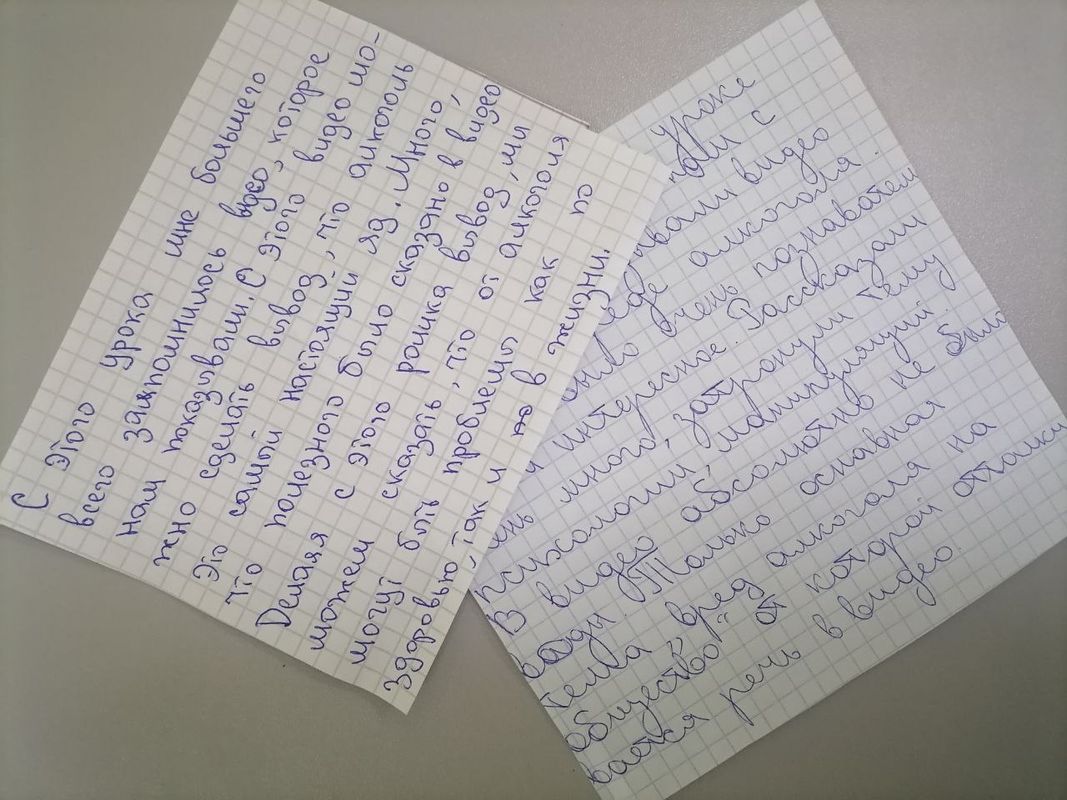 С этого урока мне большего
всего запомнилось видео, которое
нам показывали. С этого видео мо-
жно сделать вывод, что алкоголь
это самый настоящий яд. Много,
что полезного было сказано в видео
Делая с этого ролика вывод, мы
можем сказать, что от алкоголя
могут быть проблемы как по
здоровью, так и в жизни.
уроке
с
видео
вреде алкоголя.
очень познавател
и интересное. Рассказали
ень много, затронули тему
психологии, манипуляций.
В видео абсолютно не было
воды. Только основная
тема "вред алкоголя на
общество" от которой отталки
вается речь в видео.